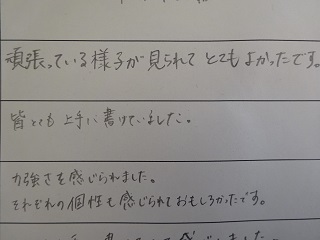 頑張っている様子が見られて とてもよかったです。
皆とても上手に書けていました。
力強さを感じられました。
それぞれの個性も感じられておもしろかったです。